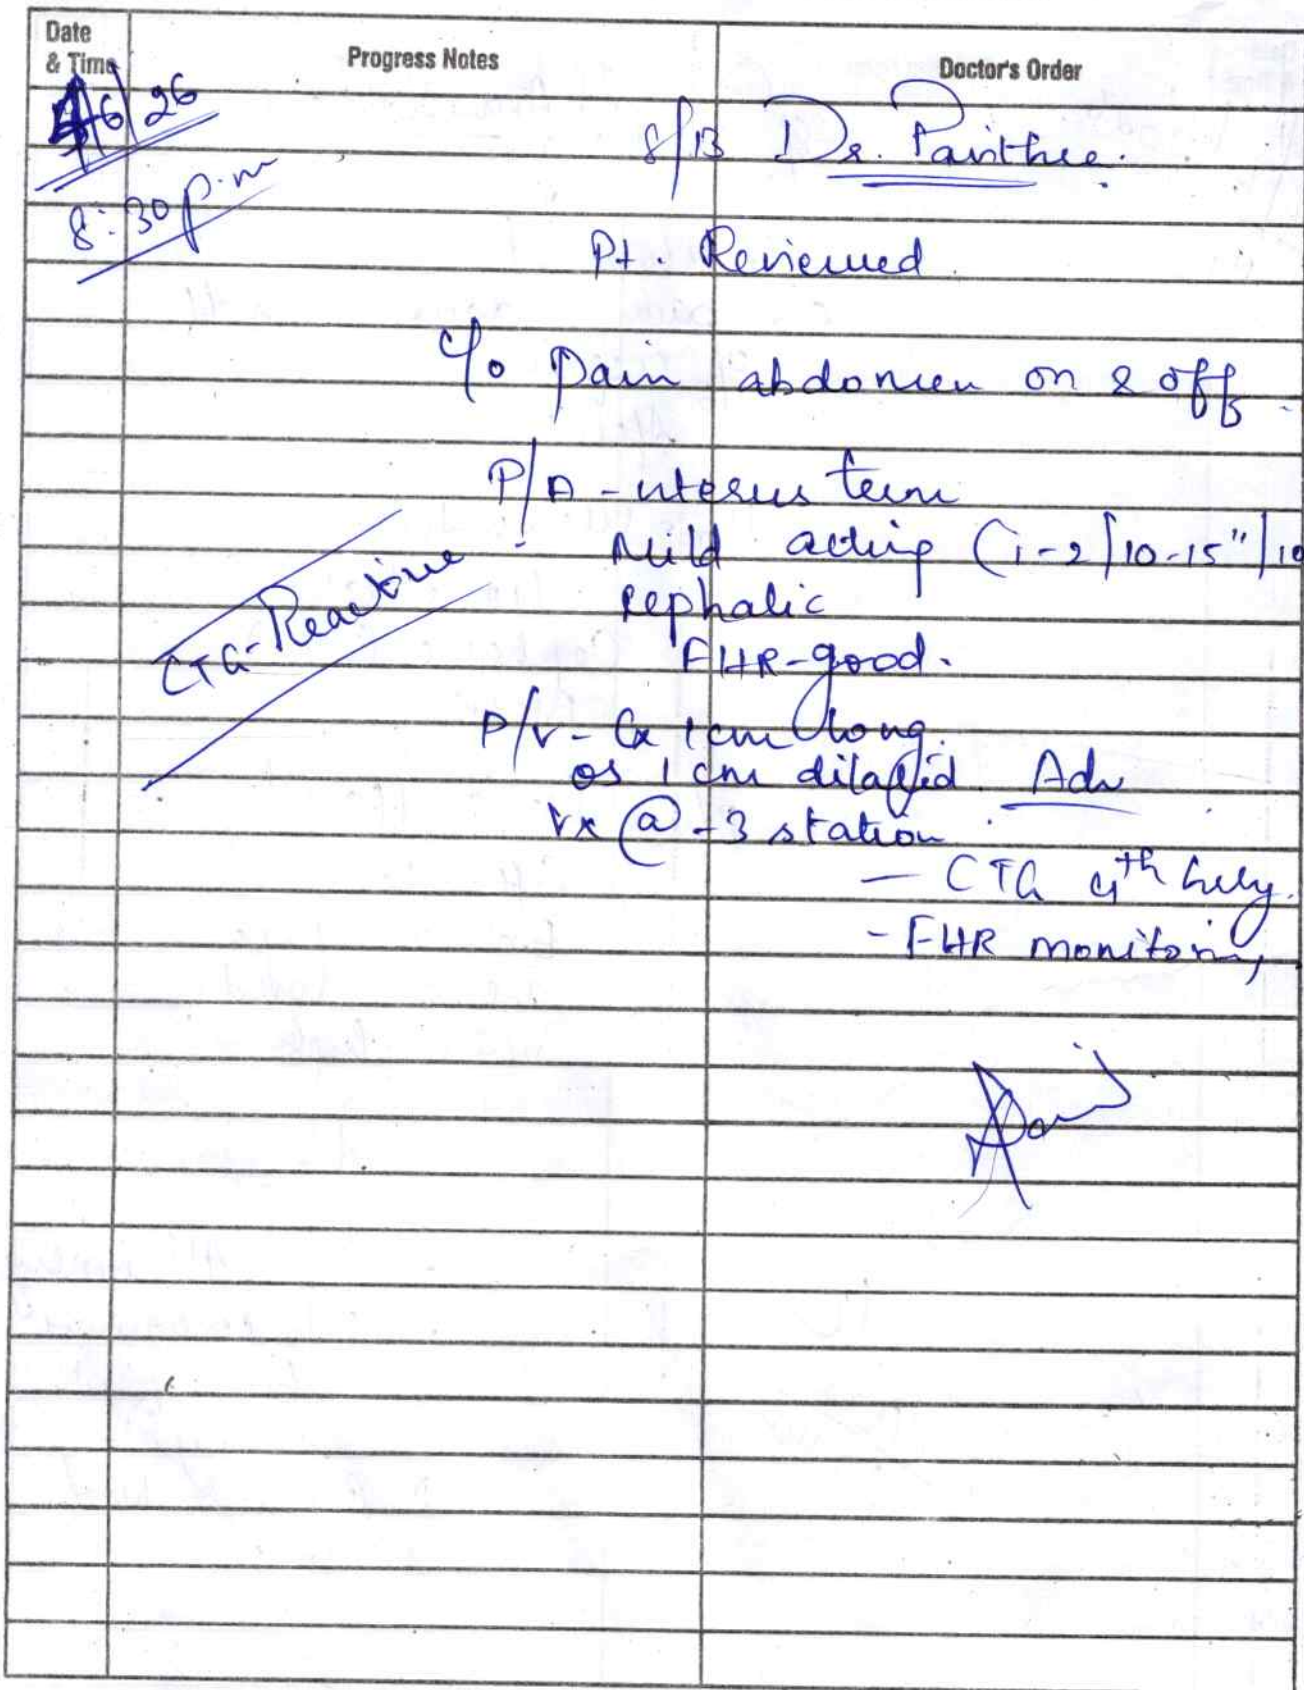 Date
& Time
Progress Notes
Doctor's Order
4/6/26
8:30 p.m
S/B Dr.
Pt. Reviewed.
c/o Pain abdomen on & off.
P/A - uterus term
Mild acting (1-2/10-15"/10
cephalic
FHR-good.
CTG-Reactive
P/V - Cx 1 cm long.
os 1 cm dilated.
Vx @ -3 station
Adv
- CTG 4th hrly.
- FHR monitoring